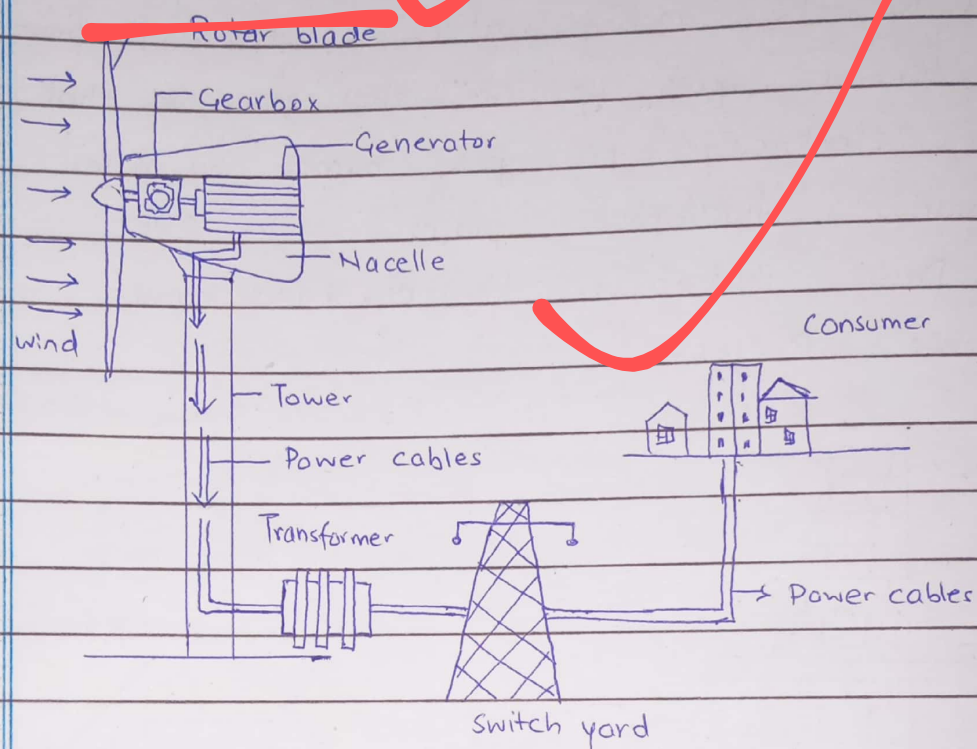 Rotar blade
Gearbox
Generator
Nacelle
wind
Consumer
Tower
Power cables
Transformer
Power cables
Switch yard